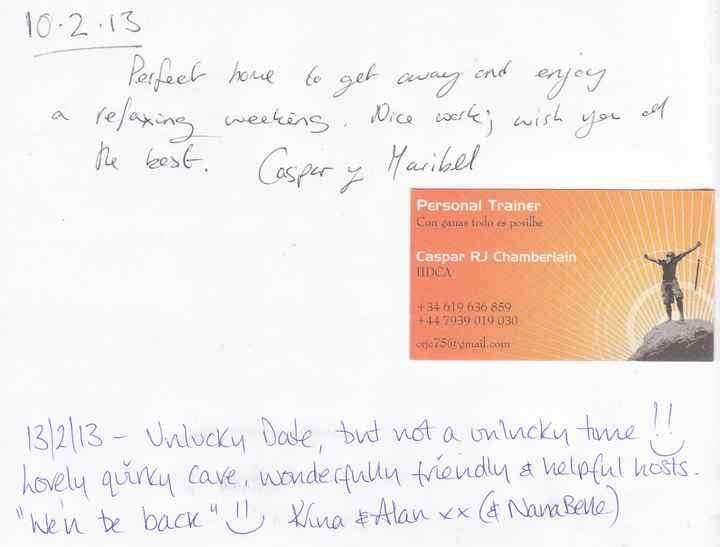 10.2.13
Perfect home to get away and enjoy
a relaxing weekeng. Nice work; wish you all
the best. Caspar y Maribel
Personal Trainer
Con ganas todo es posilbe
Caspar RJ Chamberlain
IIDCA
+34 619 636 859
+44 7939 019 030
crjc75@gmail.com
13/2/13 - Unlucky Date, but not a unlucky time !!
Lovely quirky cave, wonderfully friendly & helpful hosts.
"We'll be back" !! & Alan xx (& Nana Belle)